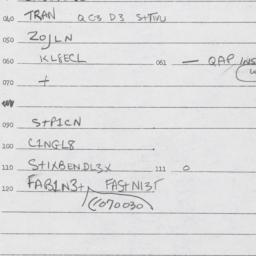 040 TRAN QC3 D3 S+TIVU
050 ZOJLN
060 KLEECL 061 — QAP INS
070 +
090 S+P1CN
100 C1NGL8
110 S+IXBENDL3X 111 0
120 FAB1N3+ FAS+N13T
(1070030)